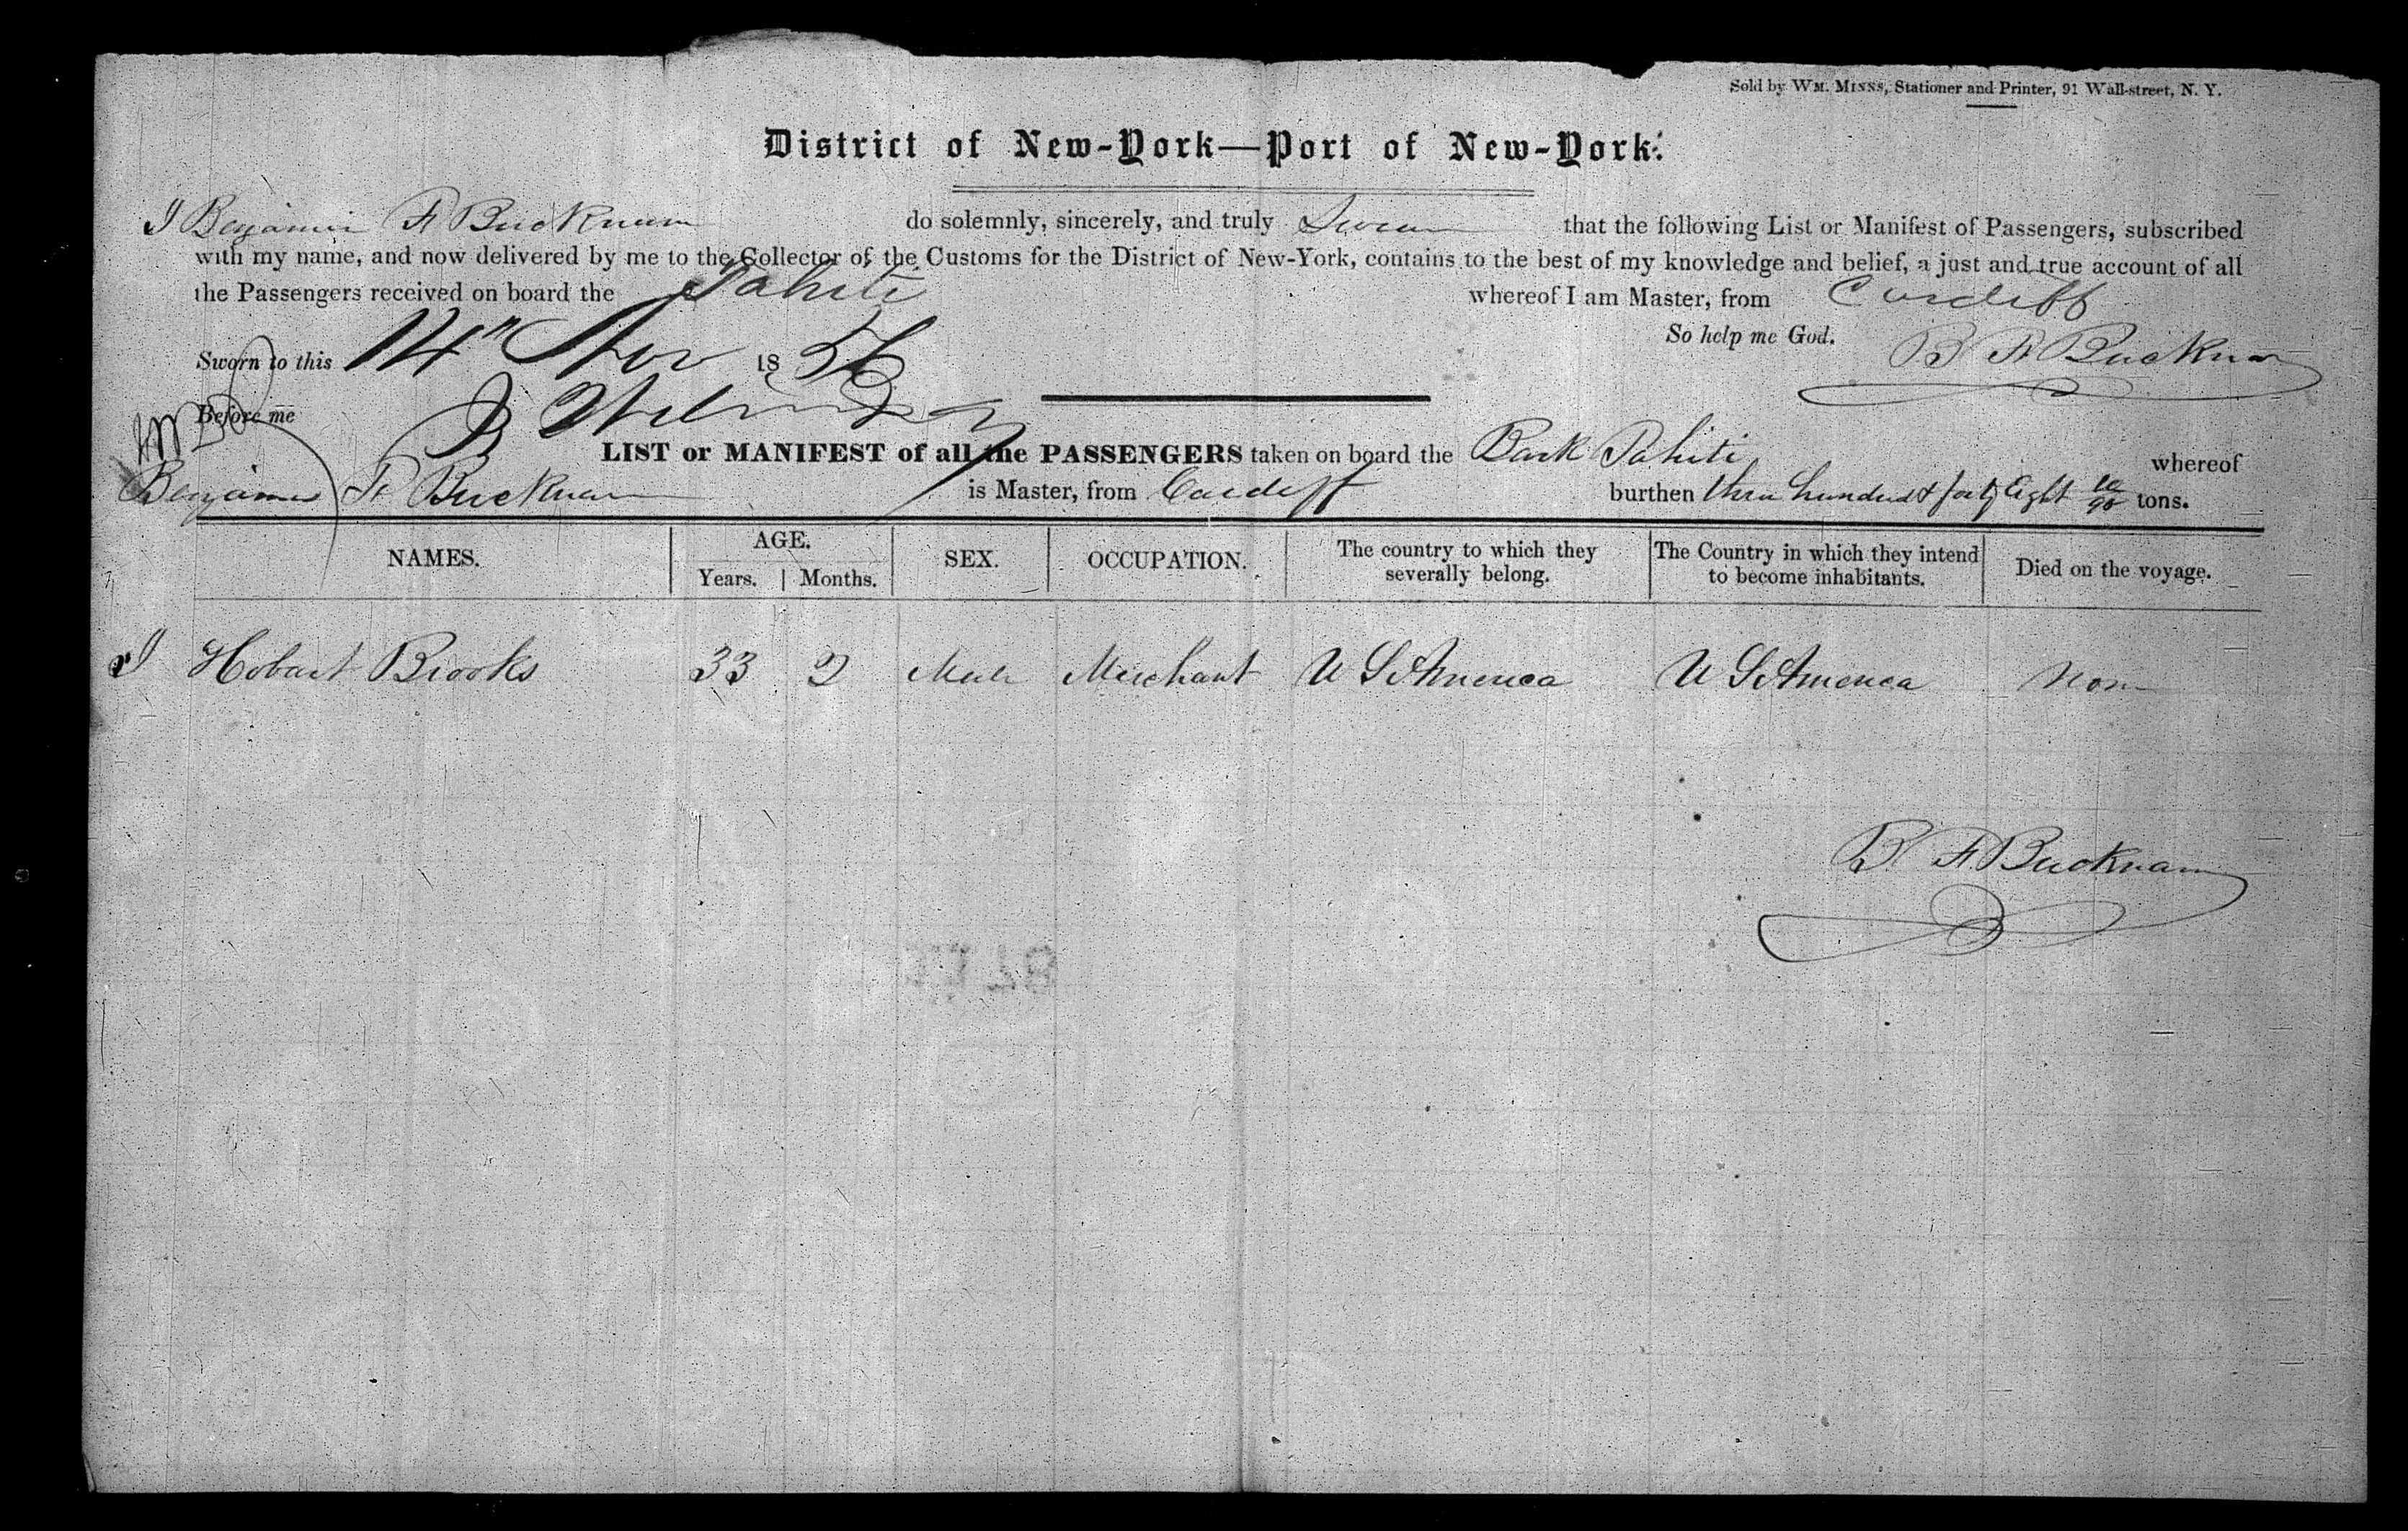 Sold by WM. MINNS, Stationer and Printer, 91 Wall-street, N. Y.
District of New-York—Port of New-York.
I Benjamin F Bucknam do solemnly, sincerely, and truly Swear that the following List or Manifest of Passengers, subscribed
with my name, and now delivered by me to the Collector of the Customs for the District of New-York, contains to the best of my knowledge and belief, a just and true account of all
the Passengers received on board the Tahiti whereof I am Master, from Cardiff
So help me God.
B F Bucknam
Sworn to this 14" Nov 1856
Before me
LIST or MANIFEST of all the PASSENGERS taken on board the Bark Tahiti whereof
Benjamin F Bucknam is Master, from Cardiff burthen three hundred & forty Eight tons.
NAMES. AGE. SEX. OCCUPATION. The country to which they severally belong. The Country in which they intend to become inhabitants. Died on the voyage.
Years. Months.
Hobart Brooks 33 2 Male Merchant U S America U S America Non
B F Bucknam